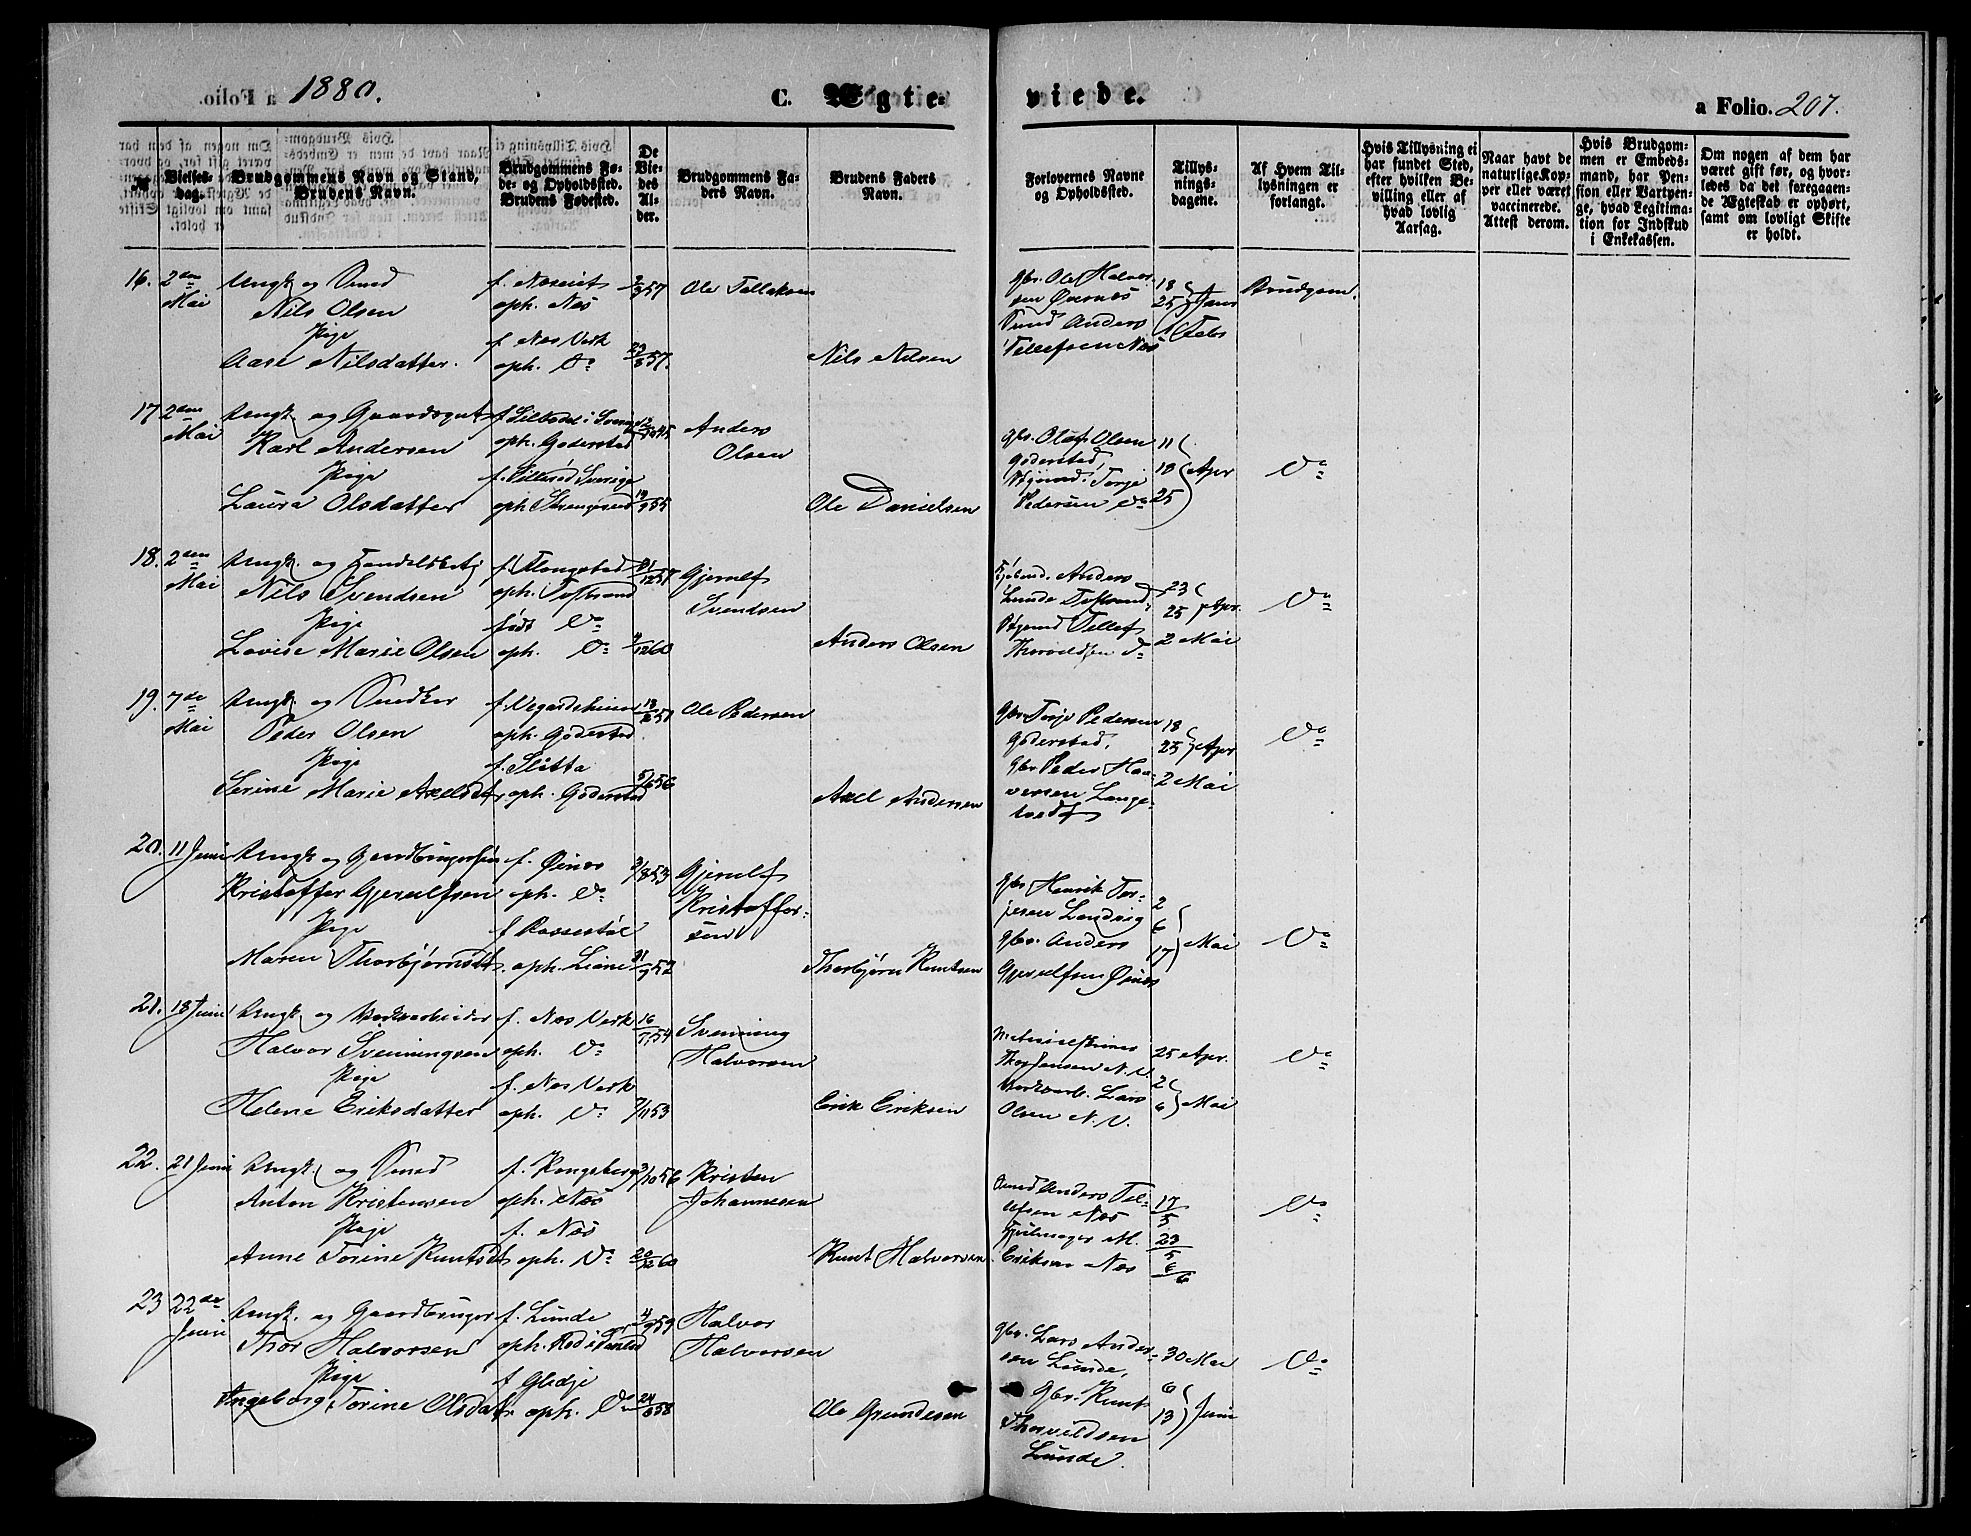 1880.
C. Ægte-
viede.
a Folio. 207.
№
Vielses-
dag.
Brudgommens Navn og Stand,
Brudens Navn.
Brudgommens Fø-
de- og Opholdssted.
Brudens Fødested.
De
Vie-
des
Al-
der.
Brudgommens Fa-
ders Navn.
Brudens Faders
Navn.
Forlovernes Navne
og Opholdssted.
Tillys-
nings-
dagene.
Af Hvem Til-
lysningen er
forlangt.
Hvis Tillysning ei
har fundet Sted,
efter hvilken Be-
villing eller af
hvad lovlig
Aarsag.
Naar havt de
naturlige Kop-
per eller været
vaccinerede.
Attest derom.
Hvis Brudgom-
men er Embeds-
mand, har Pen-
sion eller Vartpen-
ge, hvad Legitima-
tion for Indskud
i Enkekassen.
Om nogen af dem har
været gift før, og hvor-
ledes da det foregaaen-
de Ægteskab er ophørt,
samt om lovligt Skifte
er holdt.
16. 2den Mai
Ungk og Smed
Nils Olsen
Pige
Aase Nilsdatter.
oph. Næs
f. Næs Verk
oph. Do
Ole Tellefsen
Nils Nilsen
Gbr. Ole Halvor-
sen
Smed Anders
Tellefsen Næs
18 25 Janr
1 Febr
Brudgom.
17 2den Mai
Ungk. og Gaardsgut
Karl Andersen
Pige
Laura Olsdatter
oph. Goderstad
Anders
Olsen
Ole Danielsen
Gbr. Olaf Olsen
Goderstad,
Torje
Pedersen Do
11 18 25 Apr
Do
18. 2den Mai
Ungk. og
Nils Svendsen
Pige
Lovise Marie Olsen
født Do
oph. Do
Gjerulf
Svendsen
Anders Olsen
Anders
Lunde
Tellef
23 25 Apr.
2 Mai
Do
19. 7de Mai
Ungk. og Snedker
Peder Olsen
Pige
Serine Marie Axelsdt
f. Vegardsheien
oph. Goderstad
f. Sletta
oph. Goderstad
5/6 56
Ole Pedersen
Axel Andersen
Gbr Torje Pedersen
Goderstad,
Gbr Peder Hal-
versen Lange-
tvedt
18 25 Apr
2 Mai
Do
20. 11 Juni
Ungk og Gaardbrugersøn
Kristoffer Gjerulfsen
Pige
Maren Thorbjørnsdt.
f. Øines
oph. Do
oph. Liene
Gjerulf
Kristoffer-
sen
Thorbjørn Knutsen
Gbr Henrik Tor-
jesen Landvig
Gbr. Anders
Gjerulfsen Øines
2 6 17 Mai
Do
21. 18 Juni
Ungk og Verksarbeider
Halvor Svenningsen
Pige
Helene Eriksdatter
f. Næs Verk
oph. Do
f. Næs Verk
oph. Do
16/7 54
7/11 53
Svenning
Halvorsen
Erik Eriksen
Thor Jensen N. V.
Verksarb. Lars
Olsen N. V.
25 Apr.
2 6 Mai
Do
22. 21 Juni
Ungk. og Smed
Anton Kristensen
Pige
Anne Torine Knutsdt
f. Kongsberg
oph. Næs
f. Næs
oph. Do
3/10 56
20/12 60
Kristen
Johannesen
Knut Halvorsen
Smed Anders Tel-
lefsen Næs
Hjulmager M.
Eriksen Næs
17/5
23/5
6/6
Do
23 22de Juni
Ungk. og Gaardbruger
Thor Halvorsen
Pige
Ingeborg Torine Olsdat.
f. Lunde
f. Gledje
oph. Do
4/9 59
24/6 58
Halvor
Halvorsen
Ole Gundersen
Gbr. Lars Ander-
sen Lunde,
Gbr. Knut
Thorvildsen
Lunde.
30 Mai
6 13 Juni
Do